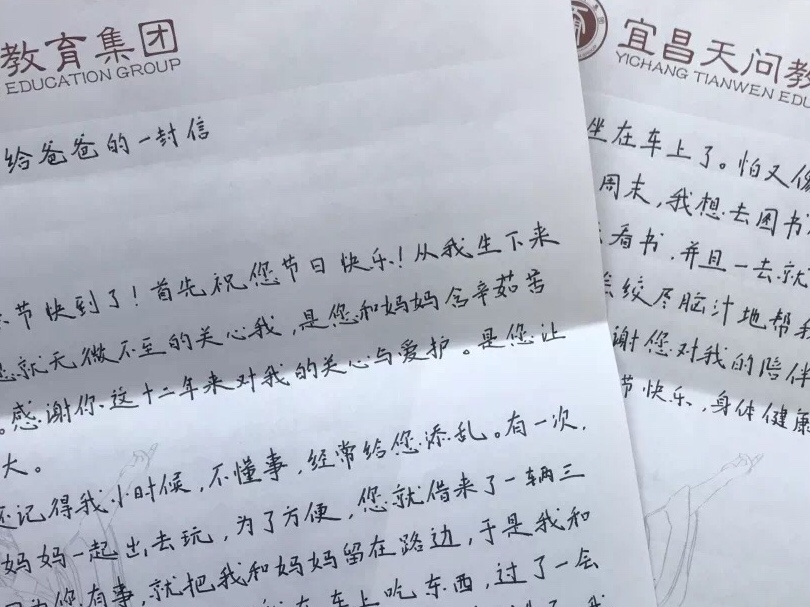 教育集团
EDUCATION GROUP
给爸爸的一封信
节快到了！首先祝您节日快乐！从我生下来
您就无微不至的关心我，是您和妈妈含辛茹苦
。感谢你这十二年来对我的关心与爱护。是您让
大。
还记得我小时候，不懂事，经常给您添乱。有一次，
妈妈一起出去玩，为了方便，您就借来了一辆三
因为你有事，就把我和妈妈留在路边，于是我和
在车上吃东西，过了一会
我
宜昌天问教
YICHANG TIANWEN EDU
坐在车上了。怕又
周末，我想去图书
看书，并且一去就
绞尽脑汁地帮我
谢您对我的陪伴
节快乐，身体健康